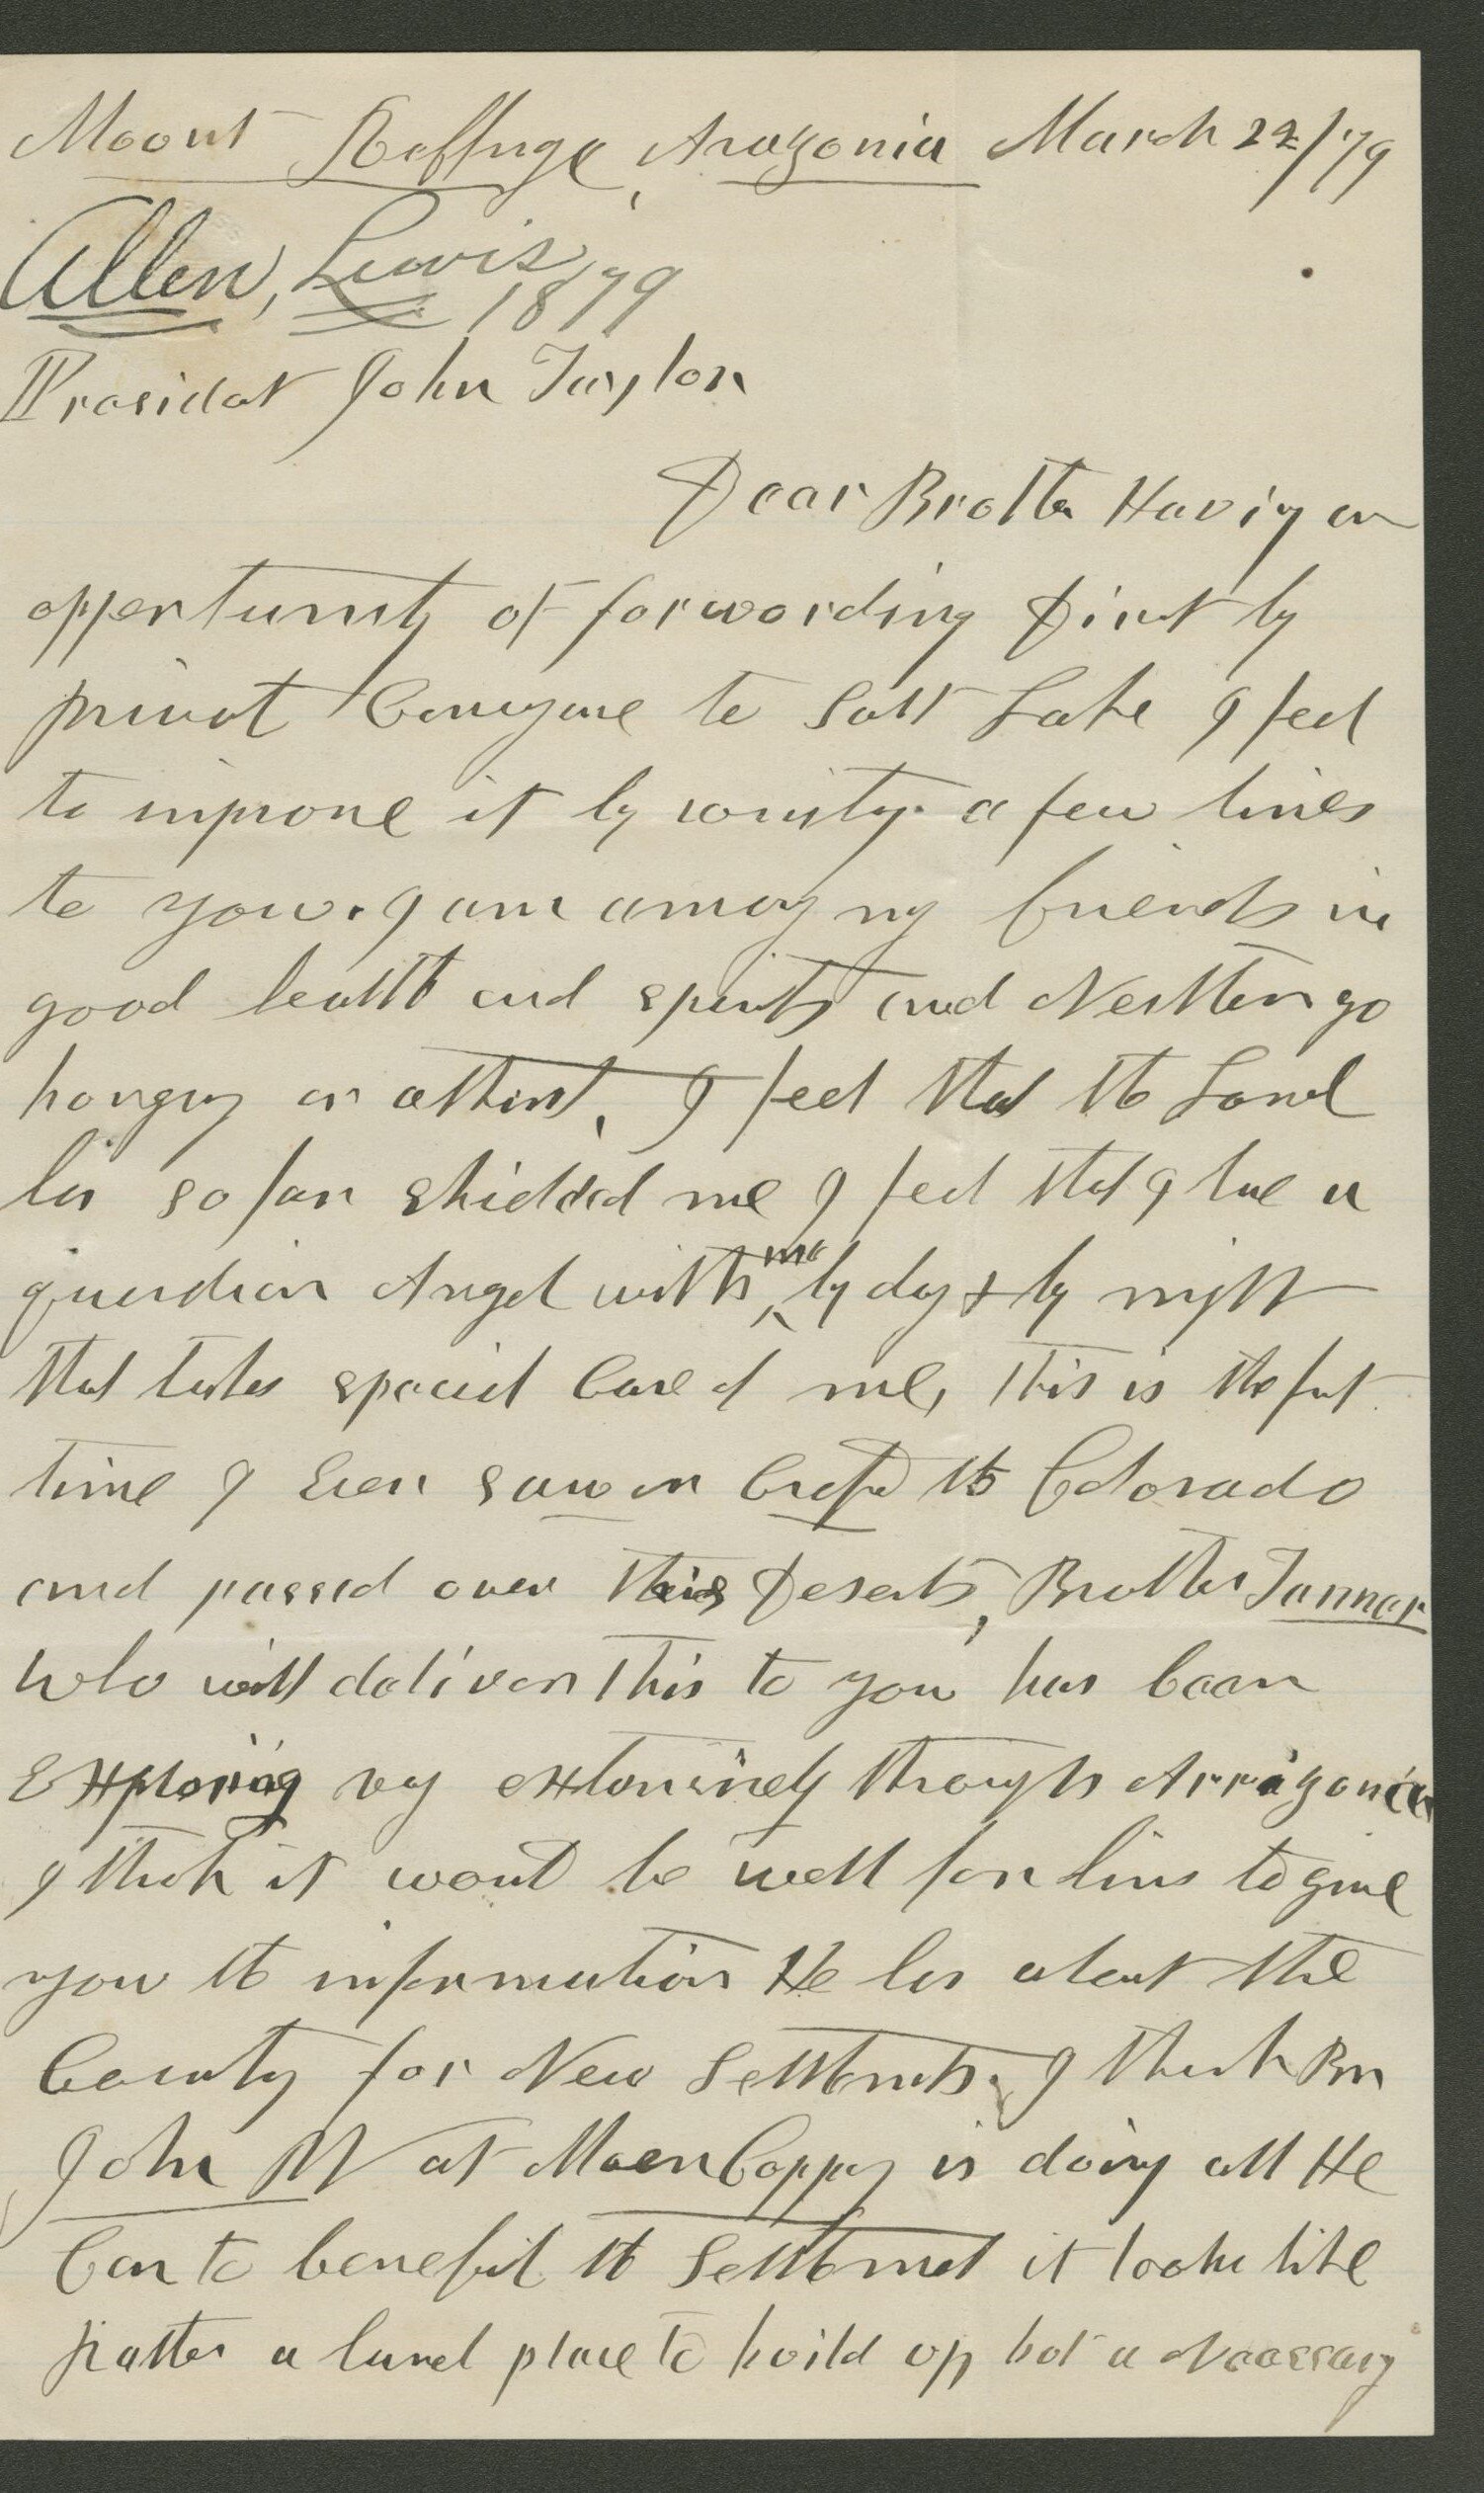 Moont Reffuge, Arazonia March 22/79
Allen, Lewis 1879
Presidat John Taylor
Dear Brother Having an
oppertunity of forwording Dirct by
privat Conveyanc to Salt Lake I feel
to improve it by writing a few lines
to you. I am among my friends in
good healtth and spirits and Neither go
hongry or athirst, I feel that the Lord
has so far shielded me I feel that I have a
guardian Angel with me by day & by night
that takes special Care of me, this is the first
time I Ever saw or Crost the Colorado
and passed over this Deserts, Brother Tannar
who will deliver this to you has been
Exploring vey extensively through Arrizonia
I think it would be well for him to give
you the information He has about the
Country for New Settlements. I think Bro
John W at Moen Coppy is doing all He
Can to benefit the Settlement it looks like
rather a hard place to boild op bot a Necessary